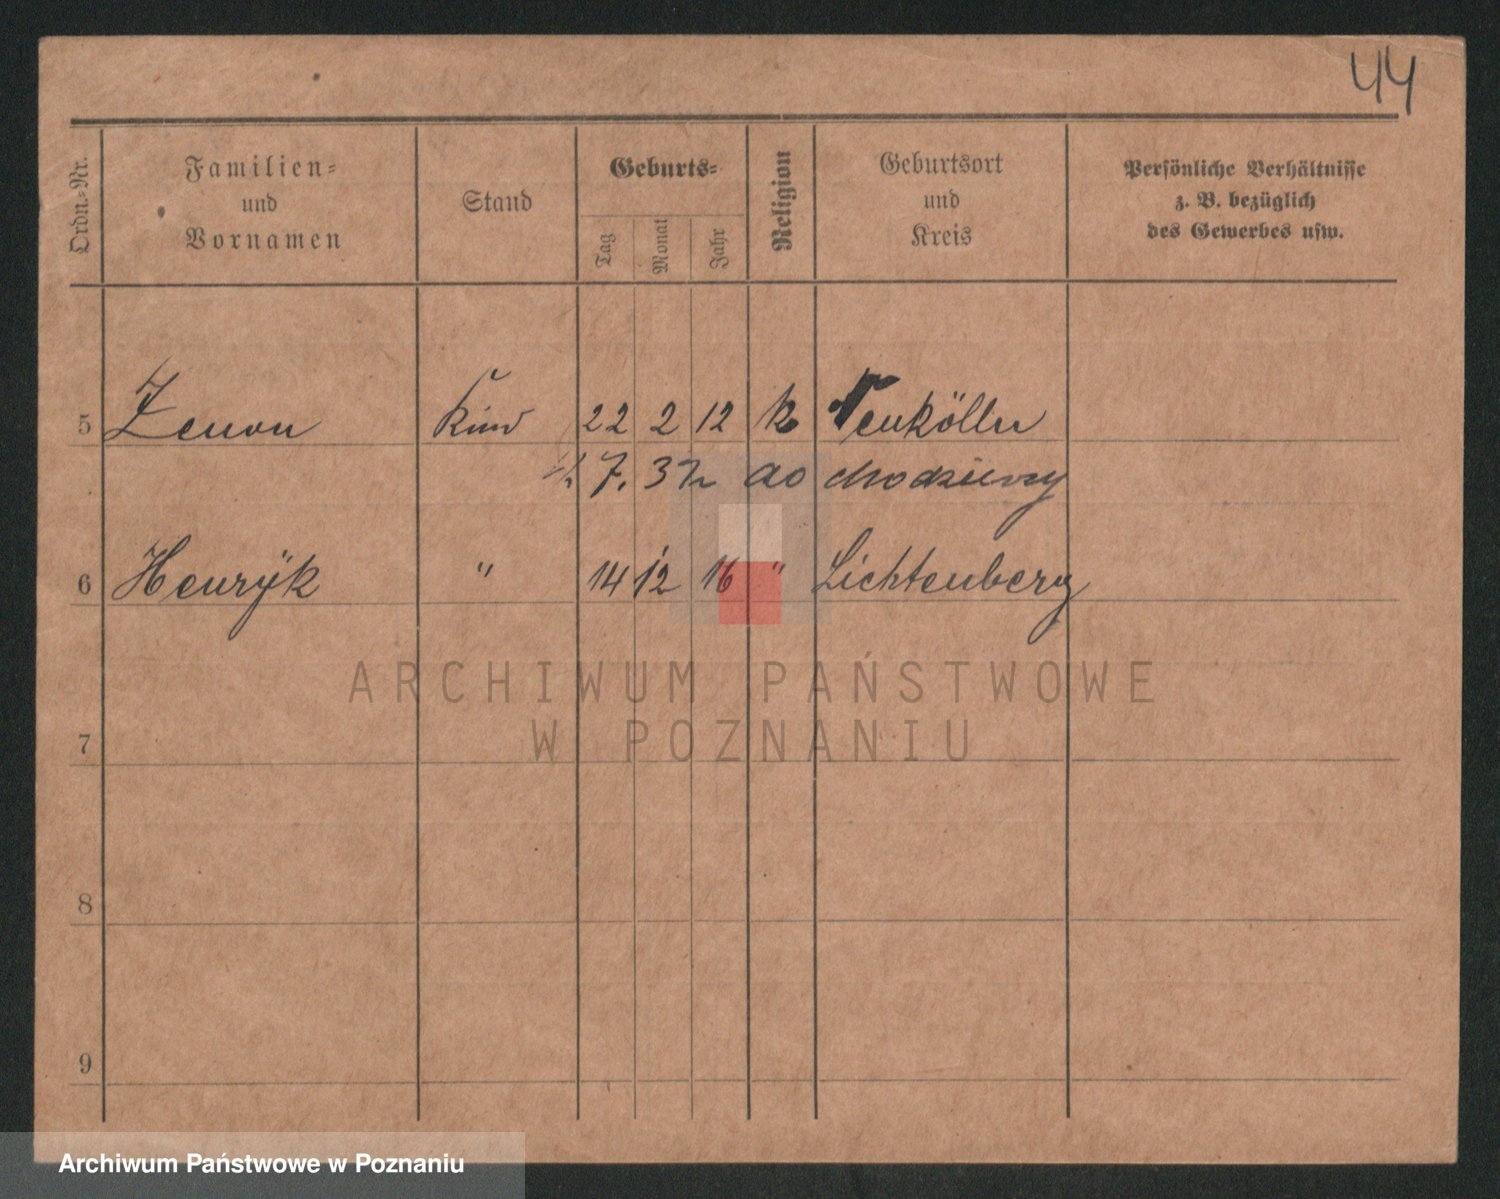 44
Ordn.-Nr.
Familien-
und
Vornamen
Stand
Geburts-
Tag
Monat
Jahr
Religion
Geburtsort
und
Kreis
Persönliche Verhältnisse
z. B. bezüglich
des Gewerbes usw.
5 Zenon Kind 22 2 12 k Neukölln
7. 32 do chodzieży
6 Henryk " 14 12 16 " Lichtenberg
ARCHIWUM PAŃSTWOWE
W POZNANIU
7
8
9
Archiwum Państwowe w Poznaniu